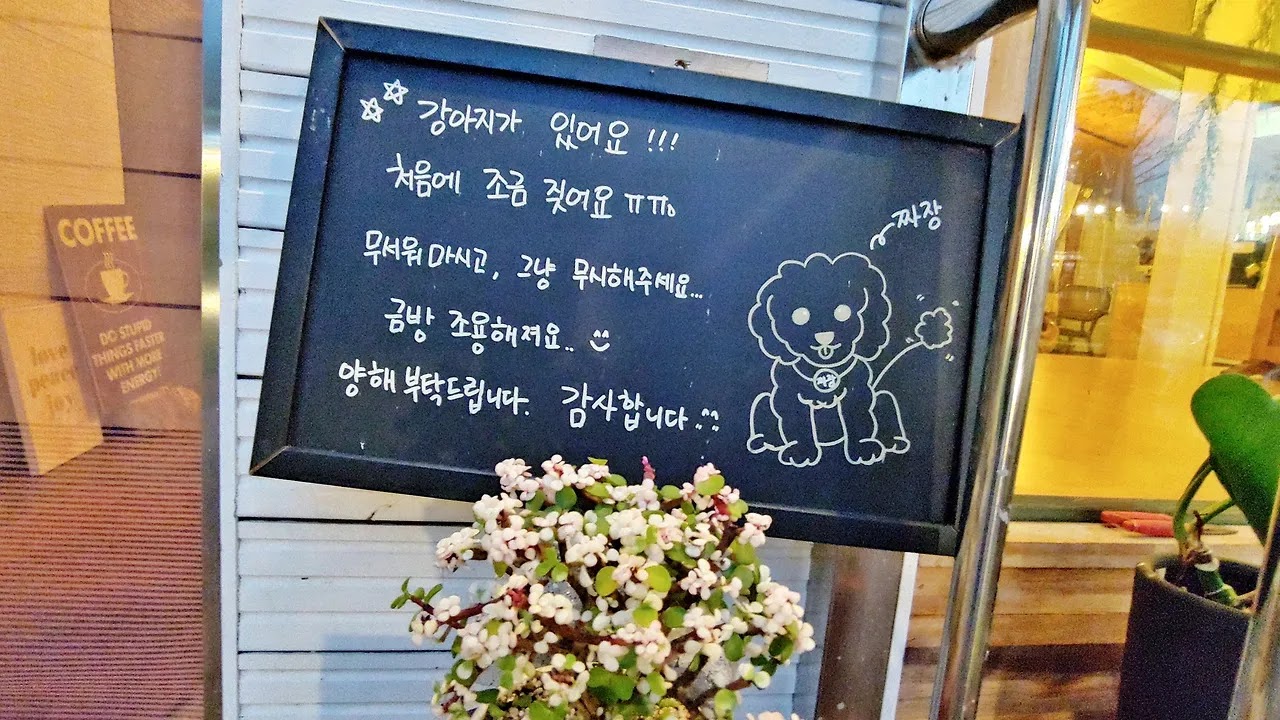 ☆☆ 강아지가 있어요 !!!
처음에 조금 짖어요 ㅠㅠ
무서워 마시고, 그냥 무시해주세요...
금방 조용해져요.. ^^
양해 부탁드립니다. 감사합니다..^^
짜장
짜장
COFFEE
DO STUPID
THINGS FASTER
WITH MORE
ENERGY!
love
peace
joy